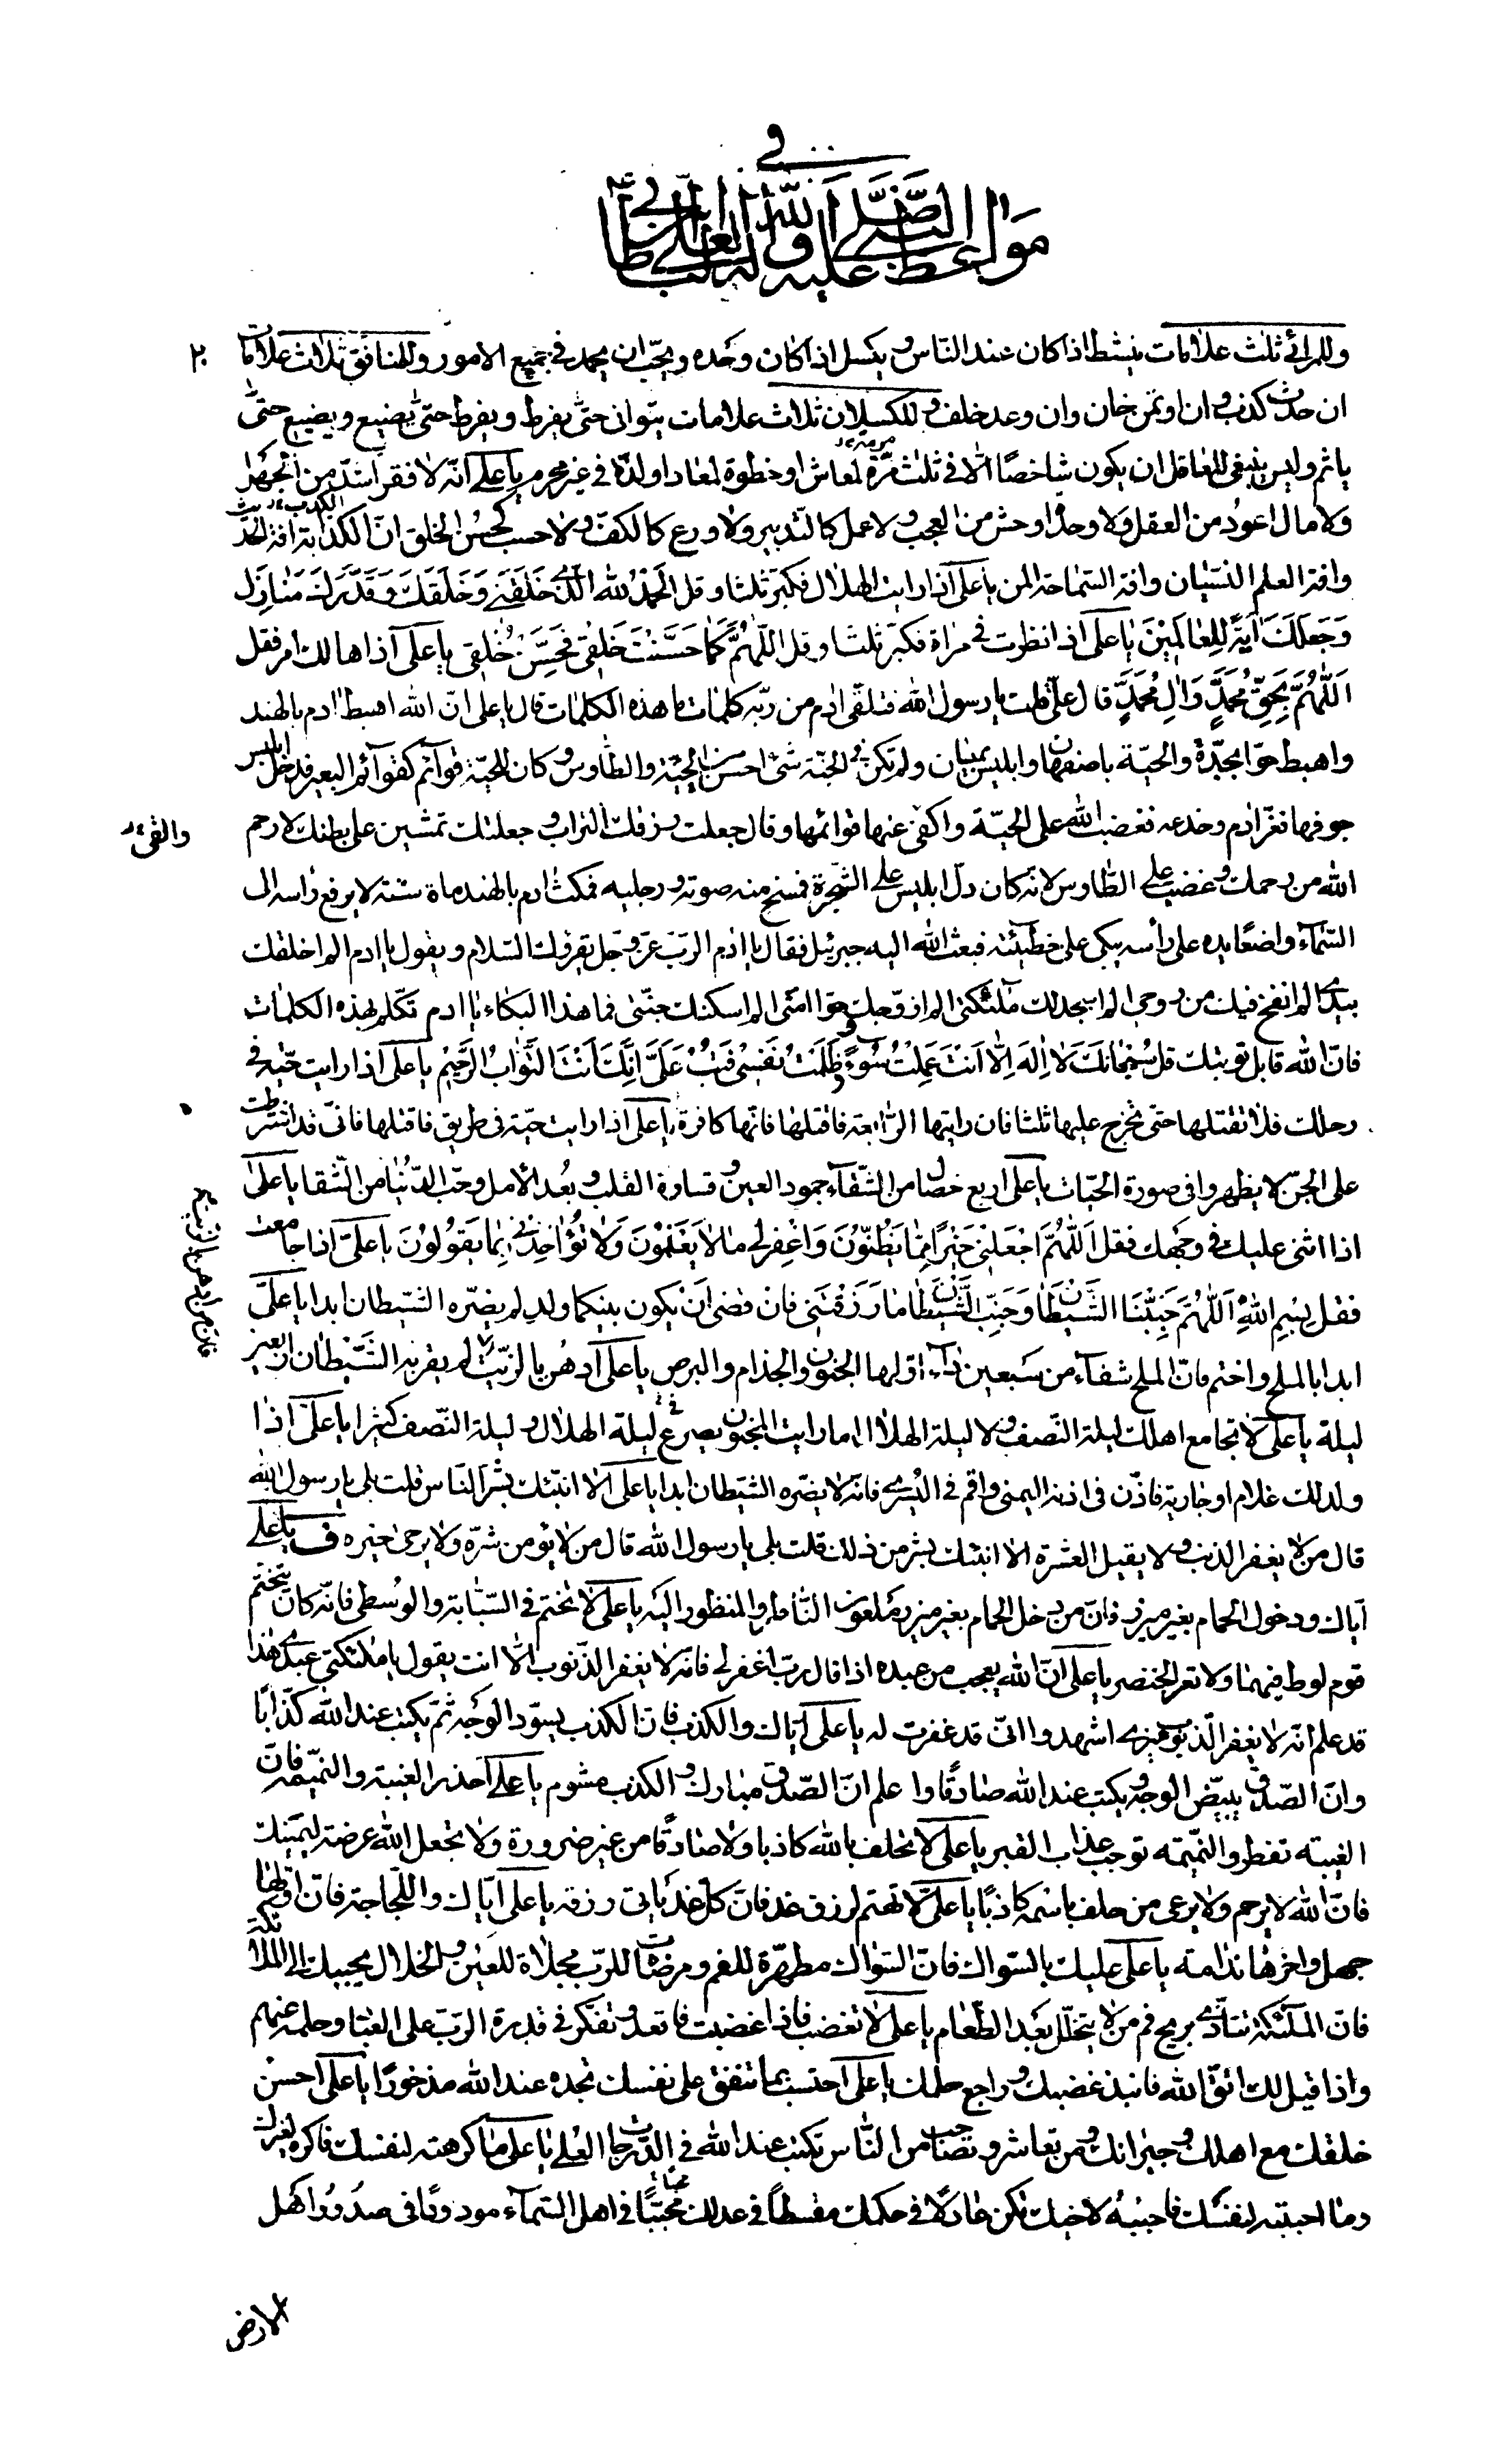 في
مواعظ النبي صلى الله عليه وآله لعلي بن أبي طالب ع
وللمرائي ثلث علامات ينشط اذا كان عند الناس و يكسل اذا كان وحده ويحب ان يحمد في جميع الامور وللمنافق ثلاث علامات
٢٠
ان حدث كذب و ان اوتمن خان وان وعد خلف و للكسلان ثلاث علامات يتوانى حتى يفرط ويفرط حتى يضيع ويضيع حتى
ياثم وليس ينبغي للعاقل ان يكون شاخصا الا في ثلث مرمة لمعاش او خطوة لمعاد او لذة في غير محرم يا علي انه لا فقر اشد من الجهل
ولا مال اعود من العقل ولا وحدة اوحش من العجب و لا عمل كالتدبير ولا ورع كالكف و لا حسب كحسن الخلق ان الكذب افة الحديث
وافة العلم النسيان وافة السماحة المن يا علي اذا رايت الهلال فكبر ثلثا و قل الحمد لله الذي خلقني وخلقك وقدرك منازل
وجعلك اية للعالمين يا علي اذا نظرت في مراة فكبر ثلثا و قل اللهم كما حسنت خلقي فحسن خلقي يا علي اذا هالك امر فقل
اللهم بحق محمد وال محمد قال علي قلت يا رسول الله فتلقى ادم من ربه كلمات ما هذه الكلمات قال يا علي ان الله اهبط ادم بالهند
واهبط حوا بجدة والحية باصفهان وابليس بميسان ولم تكن في الجنة شئ احسن من الحية والطاوس و كان للحية قوائم كقوائم البعير فدخل ابليس
جوفها فغر ادم وخدعه فغضب الله على الحية والقى عنها قوائمها وقال جعلت رزقك التراب و جعلتك تمشين على بطنك لا رحم
والقى
الله من رحمك و غضب على الطاوس لانه كان دل ابليس على الشجرة فمسخ منه صوته و رجليه فمكث ادم بالهند ماة سنة لا يرفع راسه الى
السماء واضعا يده على رأسه يبكي على خطيئته فبعث الله اليه جبرئيل فقال يا ادم الرب عز وجل يقرئك السلام ويقول يا ادم الم اخلقك
بيدي الم انفخ فيك من روحي الم اسجد لك ملئكتي الم ازوجك حوا امتي الم اسكنك جنتي فما هذا البكاء يا ادم تكلم بهذه الكلمات
فان الله قابل توبتك قل سبحانك لا اله الا انت عملت سوء و ظلمت نفسي فتب علي انك انت التواب الرحيم يا علي اذا رايت حية في
رحلك فلا تقتلها حتى تخرج عليها ثلثا فان رايتها الرابعة فاقتلها فانها كافرة يا علي اذا رايت حية في طريق فاقتلها فاني قد اشترطت
على الجن لا يظهروا في صورة الحيات يا علي اربع خصال من الشقاء جمود العين و قساوة القلب و بعد الامل وحب الدنيا من الشقا يا علي
اذا اثنى عليك في وجهك فقل اللهم اجعلني خيرا مما يظنون واغفر لي ما لا يعلمون ولا تؤاخذني بما يقولون يا علي اذا جامعت
فقل بسم الله اللهم جنبنا الشيطان وجنب الشيطان ما رزقتني فان قضى ان يكون بينكما ولد لم يضره الشيطان ابدا يا علي
ابدا بالملح واختم فان الملح شفاء من سبعين داء اولها الجنون والجذام والبرص يا علي ادهن بالزيت لم يقربه الشيطان اربعين
ليلة يا علي لا تجامع اهلك ليلة النصف و لا ليلة الهلال اما رايت المجنون يصرع في ليلة الهلال و ليلة النصف كثيرا يا علي اذا
ولد لك غلام او جارية فاذن في اذنه اليمنى واقم في اليسرى فانه لا يضره الشيطان ابدا يا علي الا انبئك بشر الناس قلت بلى يا رسول الله
قال من لا يغفر الذنب و لا يقيل العثرة الا انبئك بشر من ذلك قلت بلى يا رسول الله قال من لا يؤمن شره ولا يرجى خيره ف يا علي
اياك ودخول الحمام بغير ميزر فان من دخل الحمام بغير ميزر ملعون الناظر والمنظور اليه يا علي لا تختم في السبابة والوسطى فانه كان يتختم
قوم لوط فيهما ولا تعر الخنصر يا علي ان الله يعجب من عبده اذا قال رب اغفر لي فانه لا يغفر الذنوب الا انت يقول يا ملئكتي عبدي هذا
قد علم انه لا يغفر الذنوب غيري اشهدوا اني قد غفرت له يا علي اياك والكذب فان الكذب يسود الوجه ثم يكتب عند الله كذابا
وان الصدق يبيض الوجه و يكتب عند الله صادقا وا علم ان الصدق مبارك و الكذب مشوم يا علي احذر الغيبة والنميمة فان
الغيبة تفطر والنميمة توجب عذاب القبر يا علي لا تحلف بالله كاذبا ولا صادقا من غير ضرورة ولا تجعل الله عرضة ليمينك
فان الله لا يرحم ولا يرعى من حلف باسمه كاذبا يا علي لا تهتم لرزق غد فان كل غد ياتي رزقه يا علي اياك واللجاجة فان اولها
جهل واخرها ندامة يا علي عليك بالسواك فان السواك مطهرة للفم و مرضات للرب مجلاة للعين و الخلال يحببك الى الملائكة
فان الملئكة تتاذى بريح فم من لا يتخلل بعد الطعام يا علي لا تغضب فاذا غضبت فاقعد و تفكر في قدرة الرب على العباد و حلمه عنهم
واذا قيل لك اتق الله فانبذ غضبك و راجع حلمك يا علي احتسب بما تنفق على نفسك تجده عند الله مذخورا يا علي احسن
خلقك مع اهلك و جيرانك و من تعاشر و تصاحب من الناس تكتب عند الله في الدرجات العلى يا علي ما كرهته لنفسك فاكره لغيرك
وما احببته لنفسك فاحببه لاخيك تكن عادلا في حكمك مقسطا في عدلك محببا في اهل السماء مودودا في صدور اهل
الارض